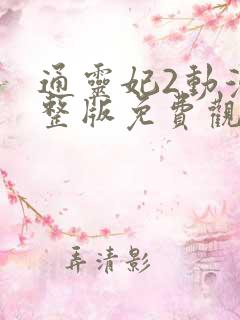 通靈妃2動漫
整版免費觀
弄清影